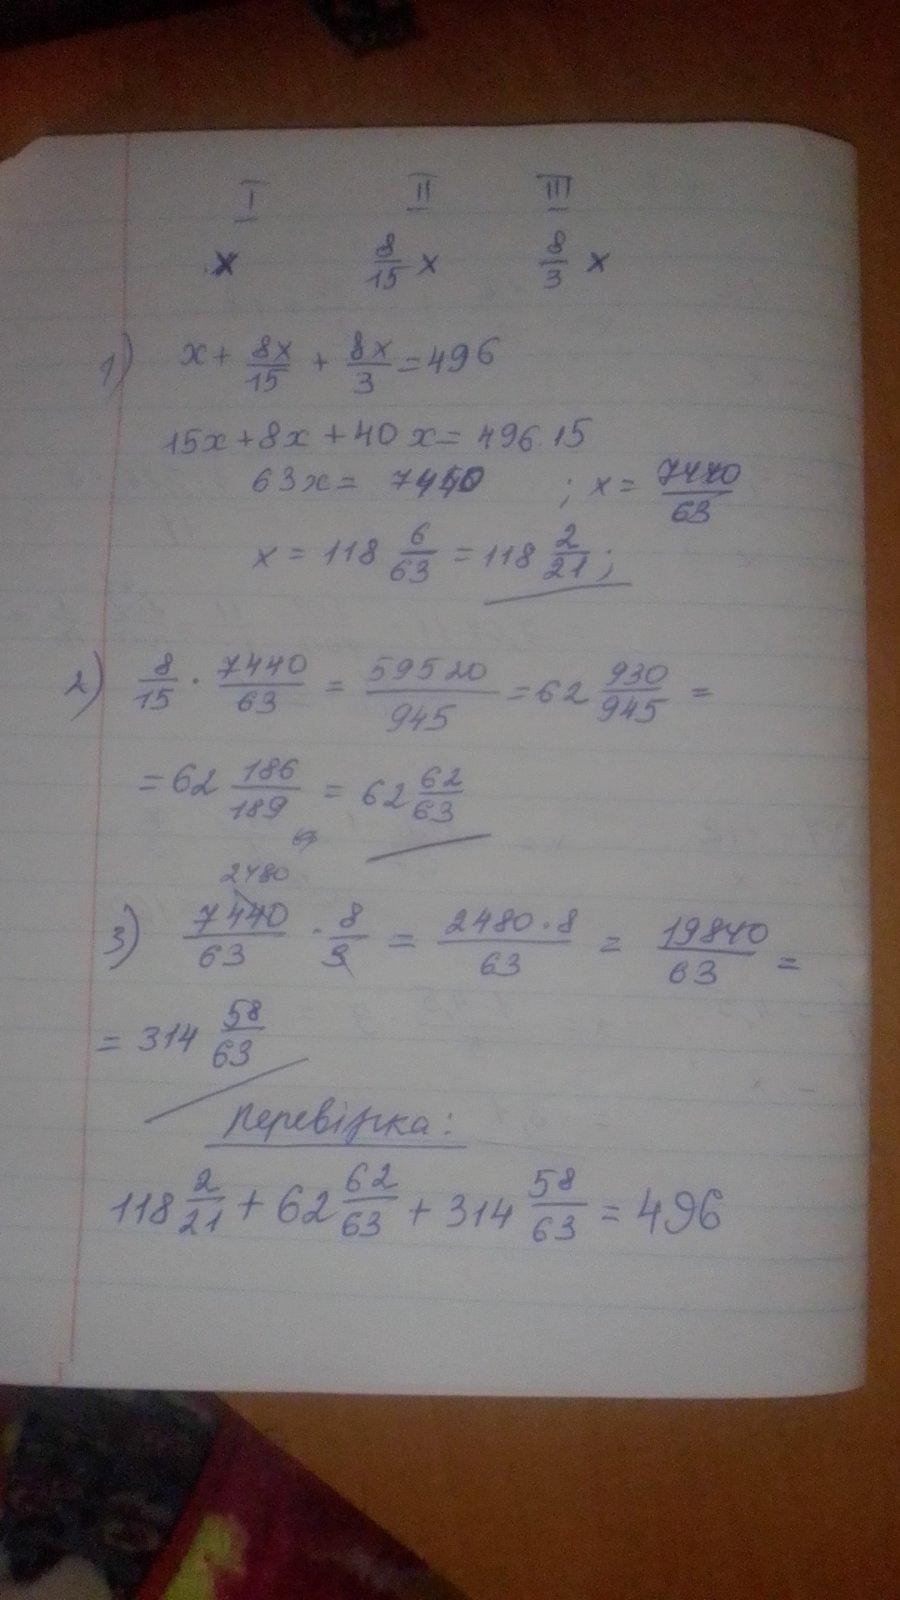 I II III
x 8/15 x 8/3 x
1) x + 8x/15 + 8x/3 = 496
15x + 8x + 40x = 496·15
63x = 7440 ; x = 7440/63
x = 118 6/63 = 118 2/21;
2) 8/15 · 7440/63 = 59520/945 = 62 930/945 =
= 62 186/189 = 62 62/63
2480
3) 7440/63 · 8/3 = 2480·8/63 = 19840/63 =
= 314 58/63
Перевірка:
118 2/21 + 62 62/63 + 314 58/63 = 496